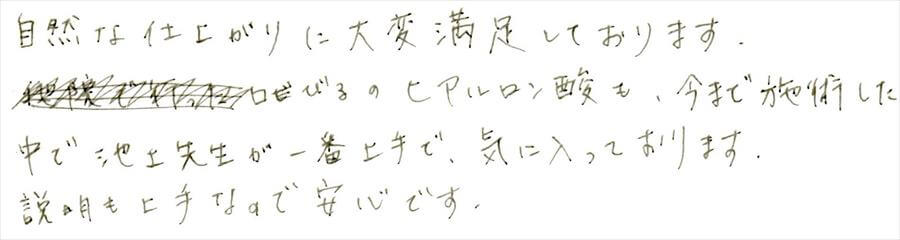 自然な仕上がりに大変満足しております.
口びるのヒアルロン酸も、今まで施術した
中で池上先生が一番上手で、気に入っております.
説明も上手なので安心です.